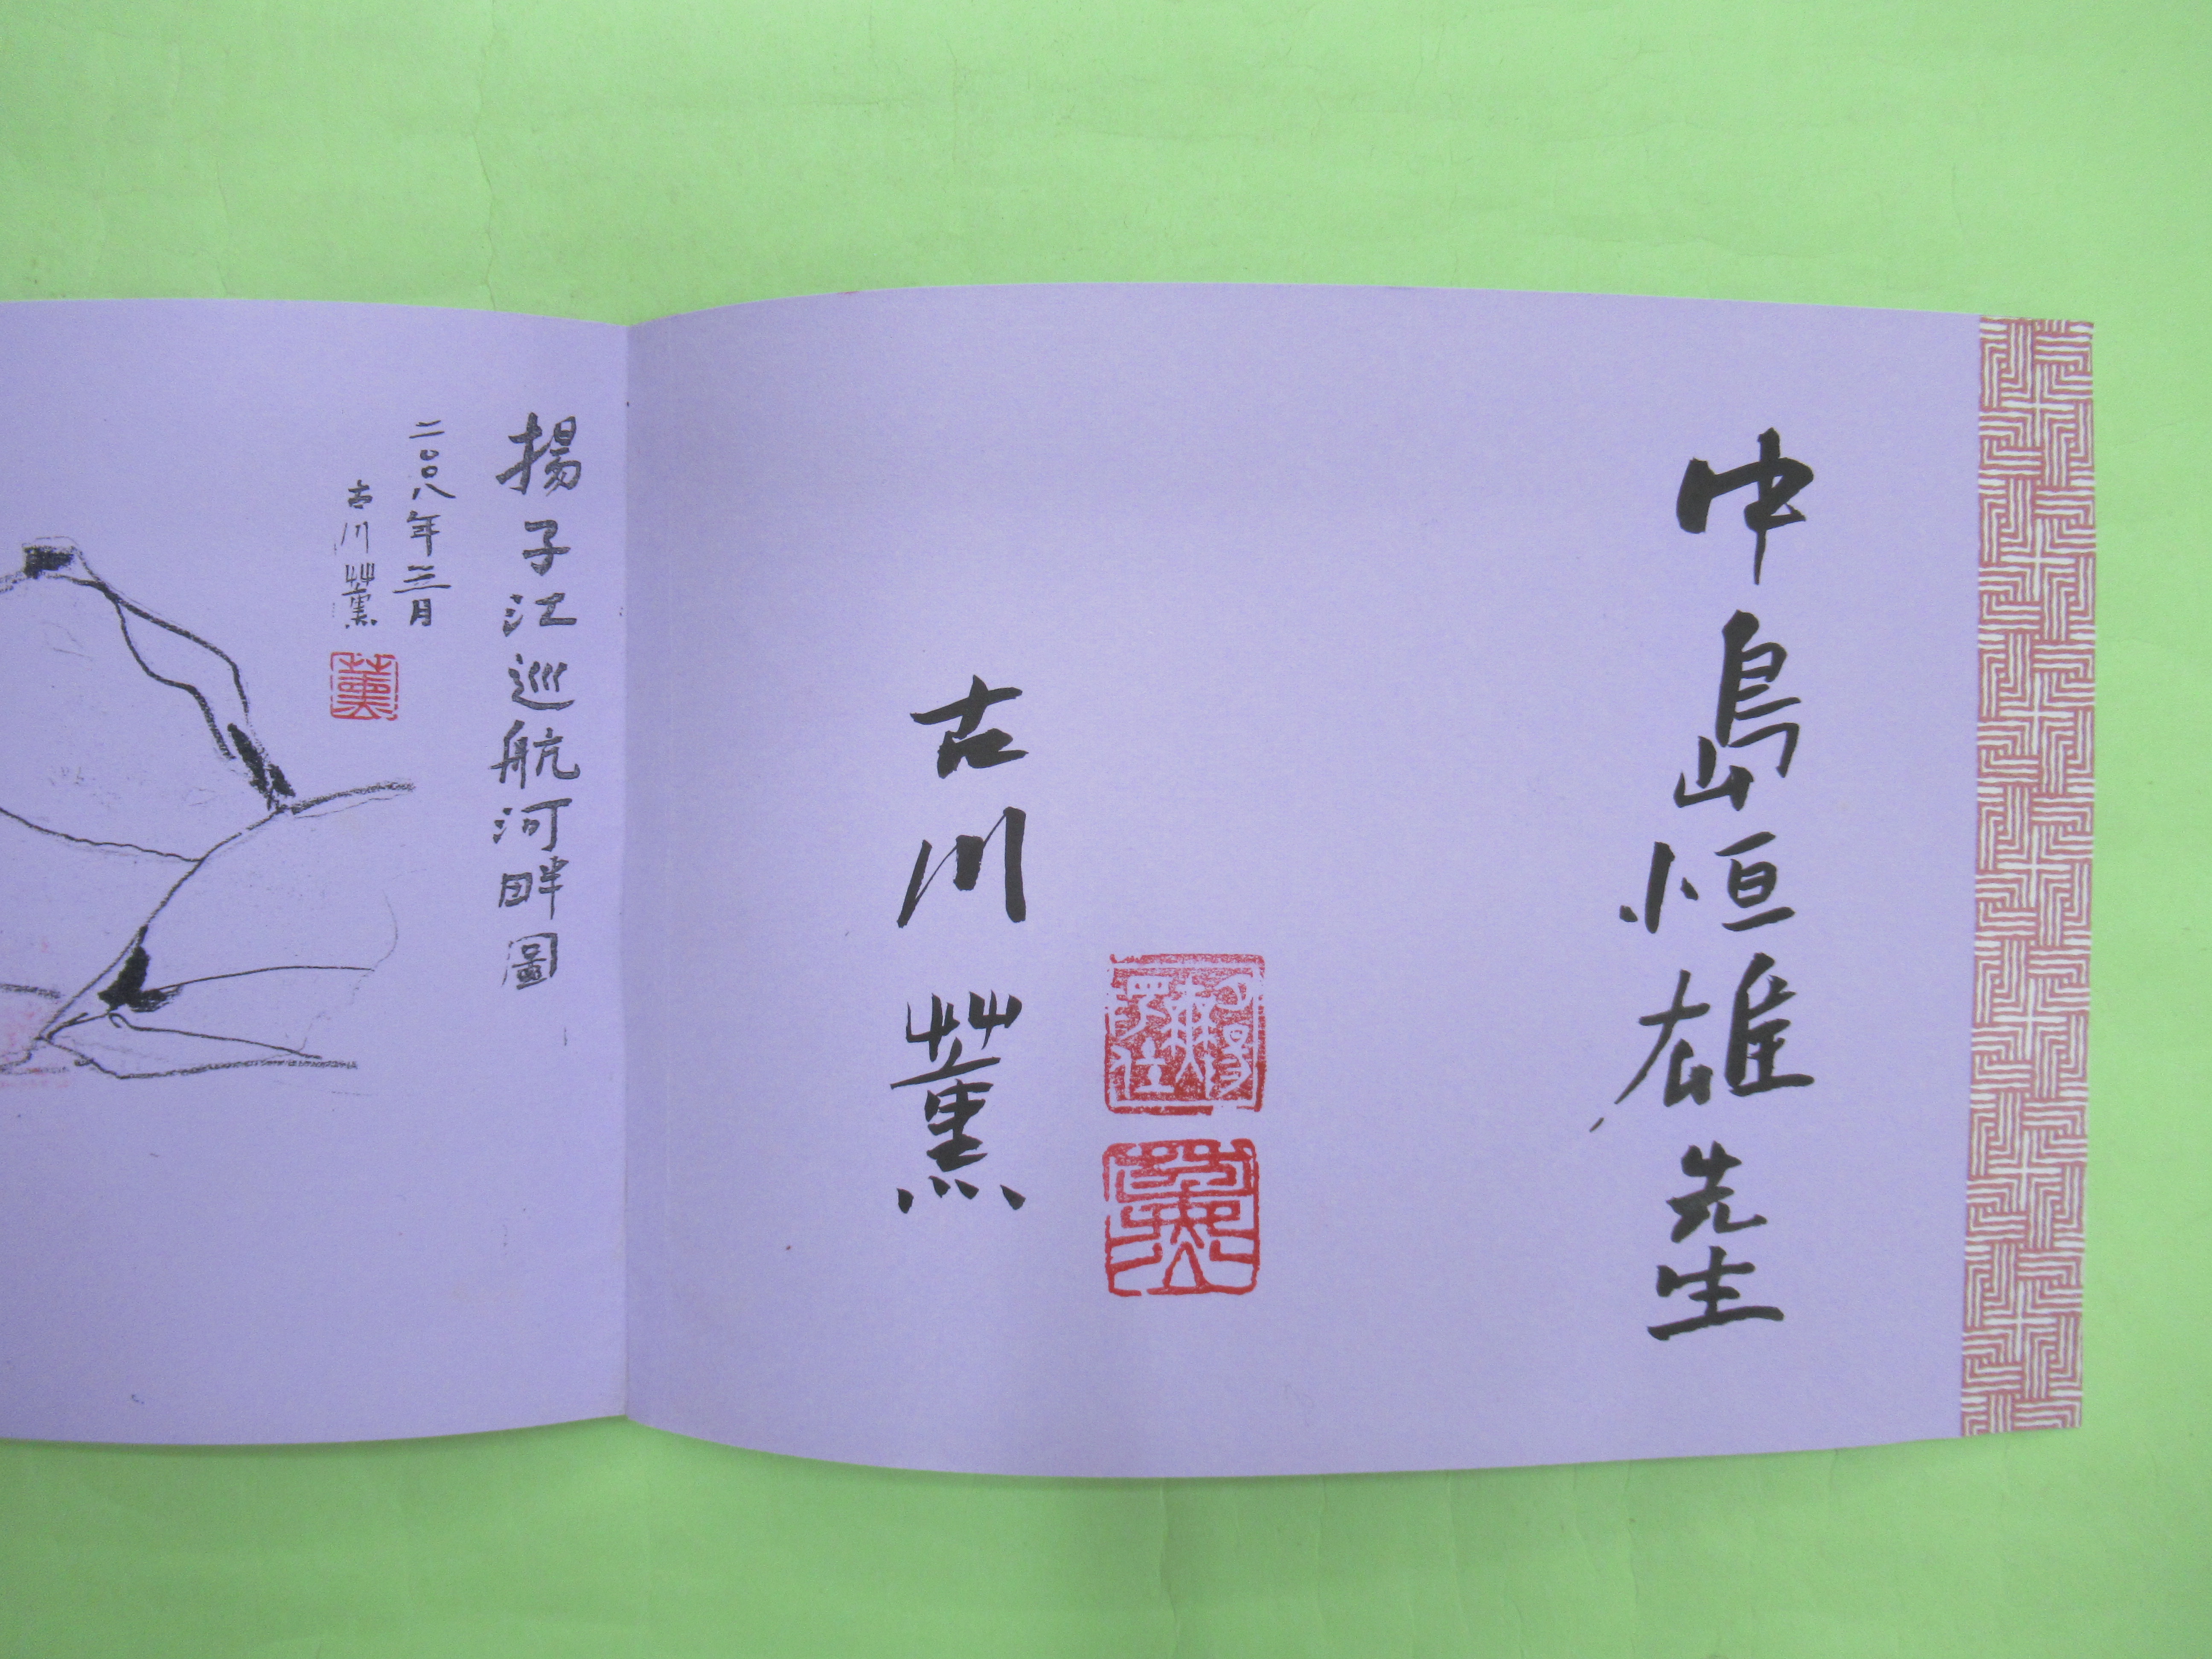 中島恒雄先生
古川薫
揚子江巡航河畔圖
二〇〇八年三月
古川薫
薫